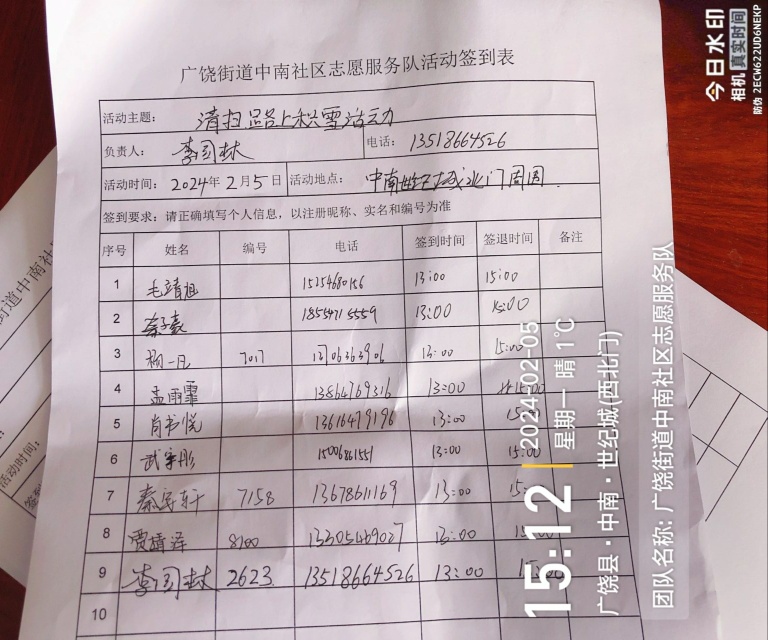 广饶街道中南社区志愿服务队活动签到表
活动主题: 清扫路上积雪活动
负责人: 李国林 电话: 13518664526
活动时间: 2024年2月5日 活动地点: 中南世纪城北门周围
签到要求: 请正确填写个人信息, 以注册昵称、实名和编号为准
序号 姓名 编号 电话 签到时间 签退时间 备注
1 毛靖旭 13:00 15:00
2 18554715559 13:00 15:00
3 杨一凡 7017 13:00 15:00
4 孟雨霏 13864769316 13:00 15:00
5 肖书悦 13616479196 13:00
6 武宇彤 15006861551 13:00 15:00
7 秦宇轩 7158 13678611169 13:00
8 贾靖泽 8100 13305469027 13:00
9 李国林 2623 13518664526 13:00
10
今日水印
相机 真实时间
防伪 2ECW622UD6NEKP
15:12
2024-02-05
星期一 晴 1℃
广饶县·中南·世纪城(西北门)
团队名称: 广饶街道中南社区志愿服务队
街道中南社
活动时间: